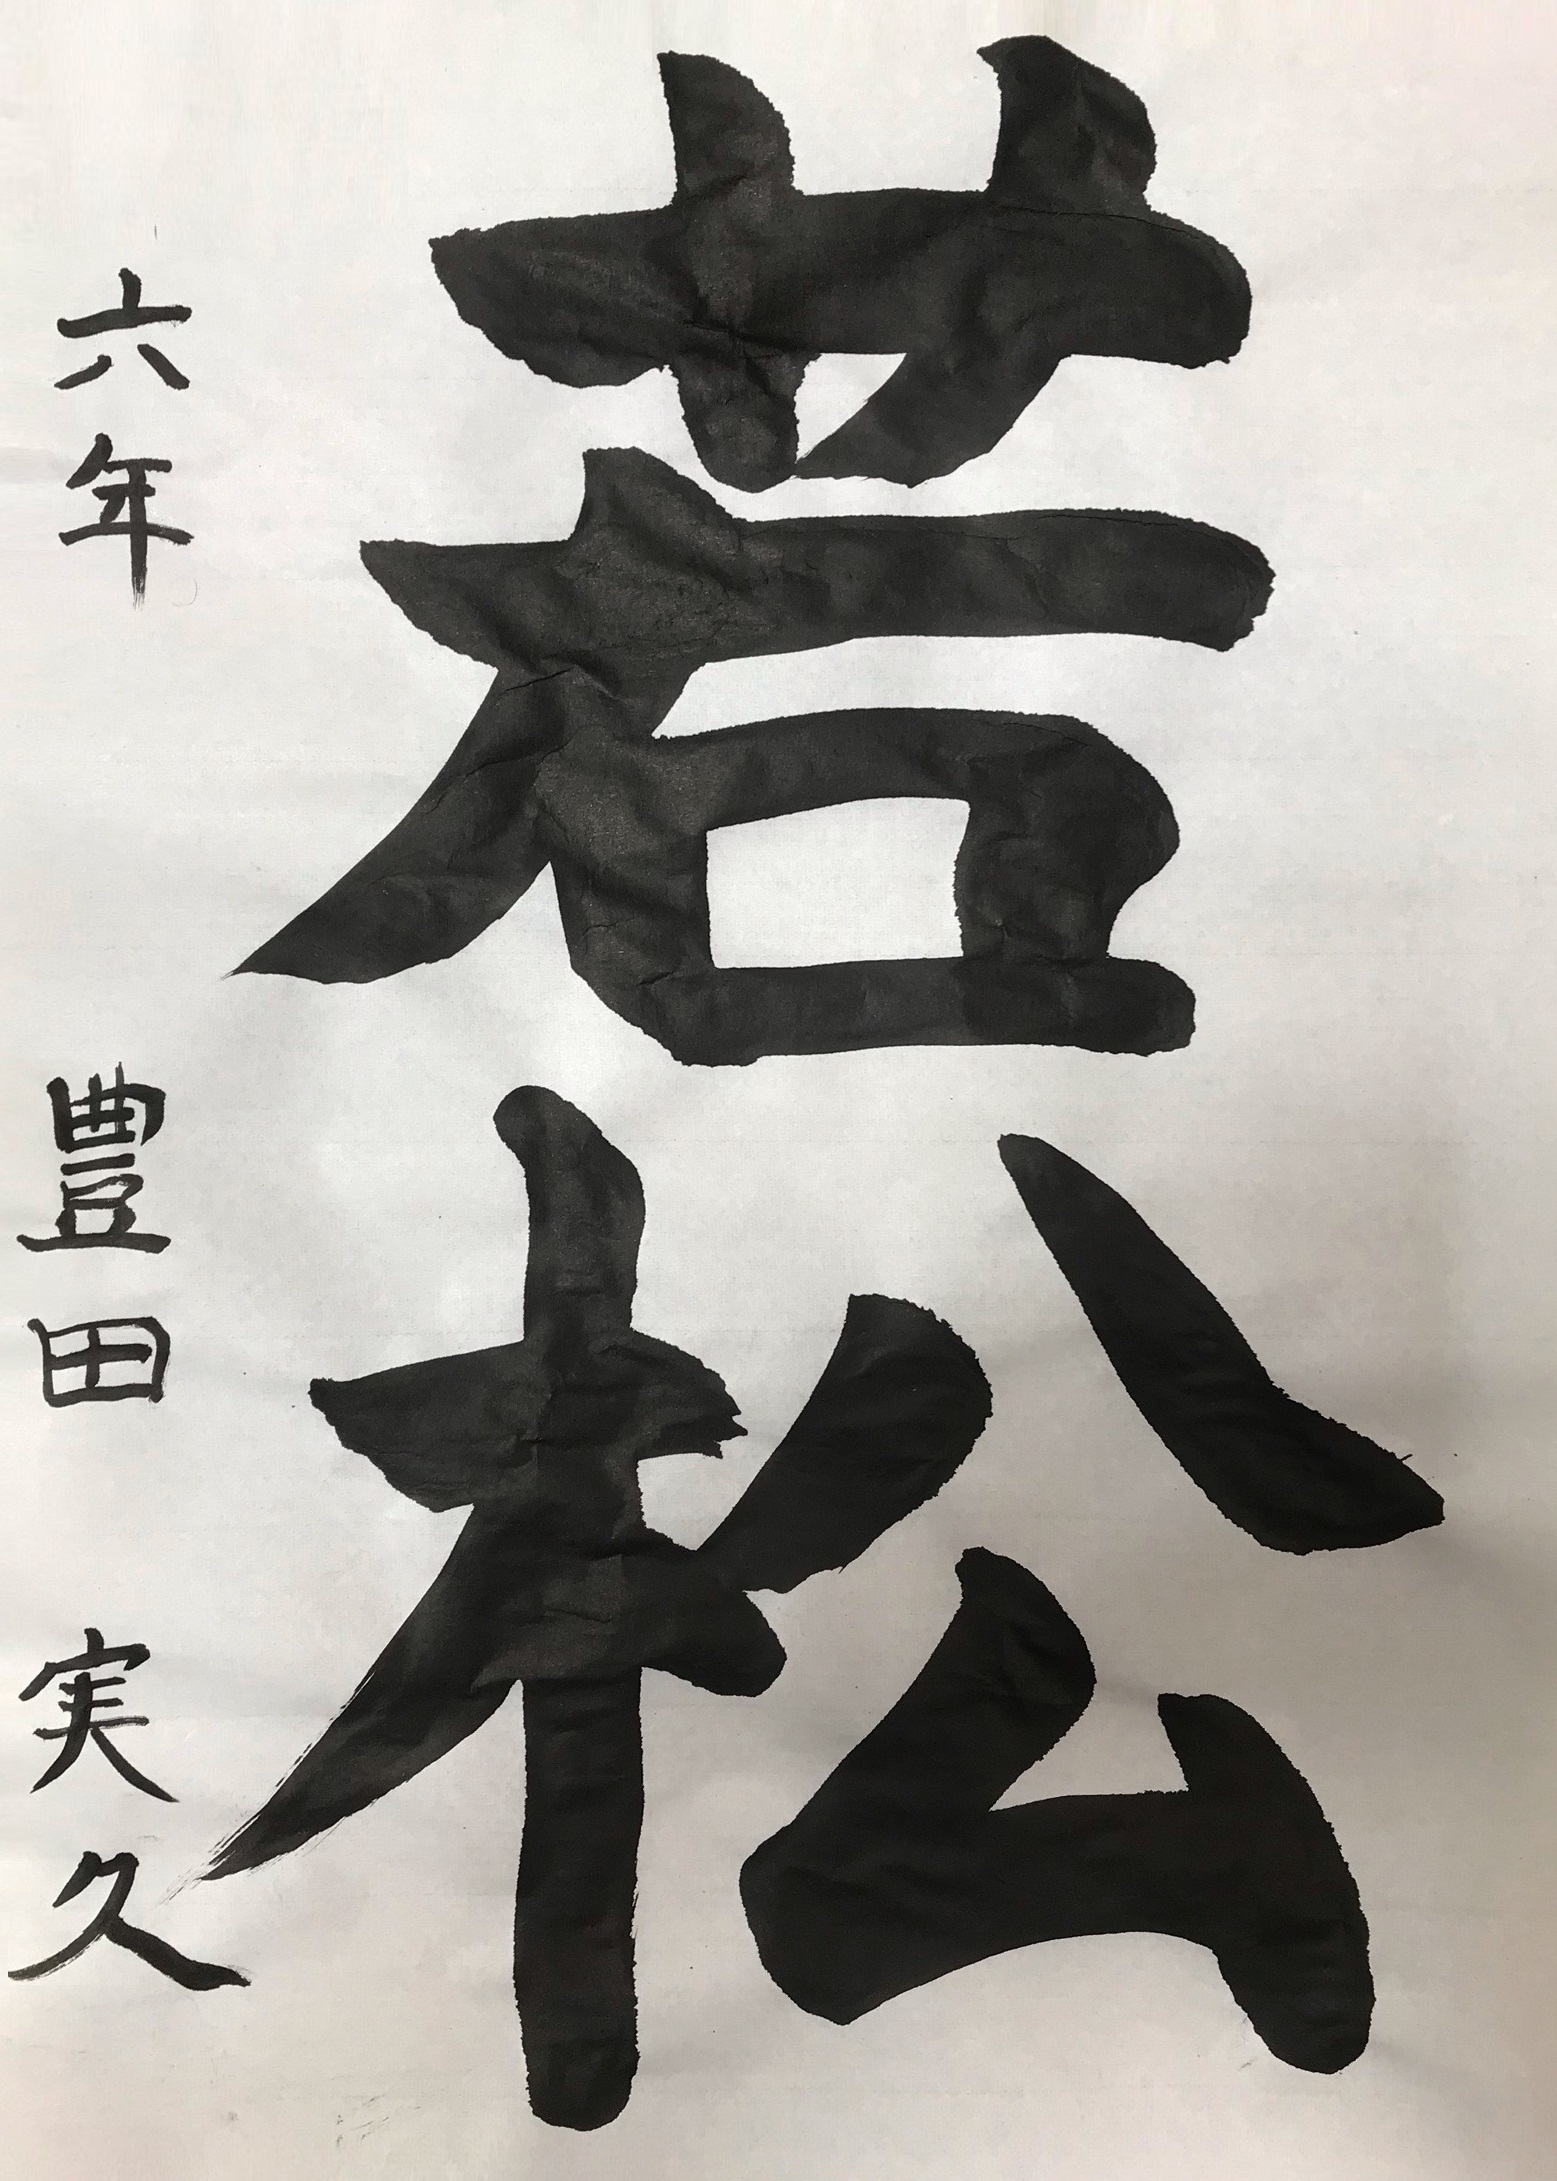 若松
六年 豊田 実久